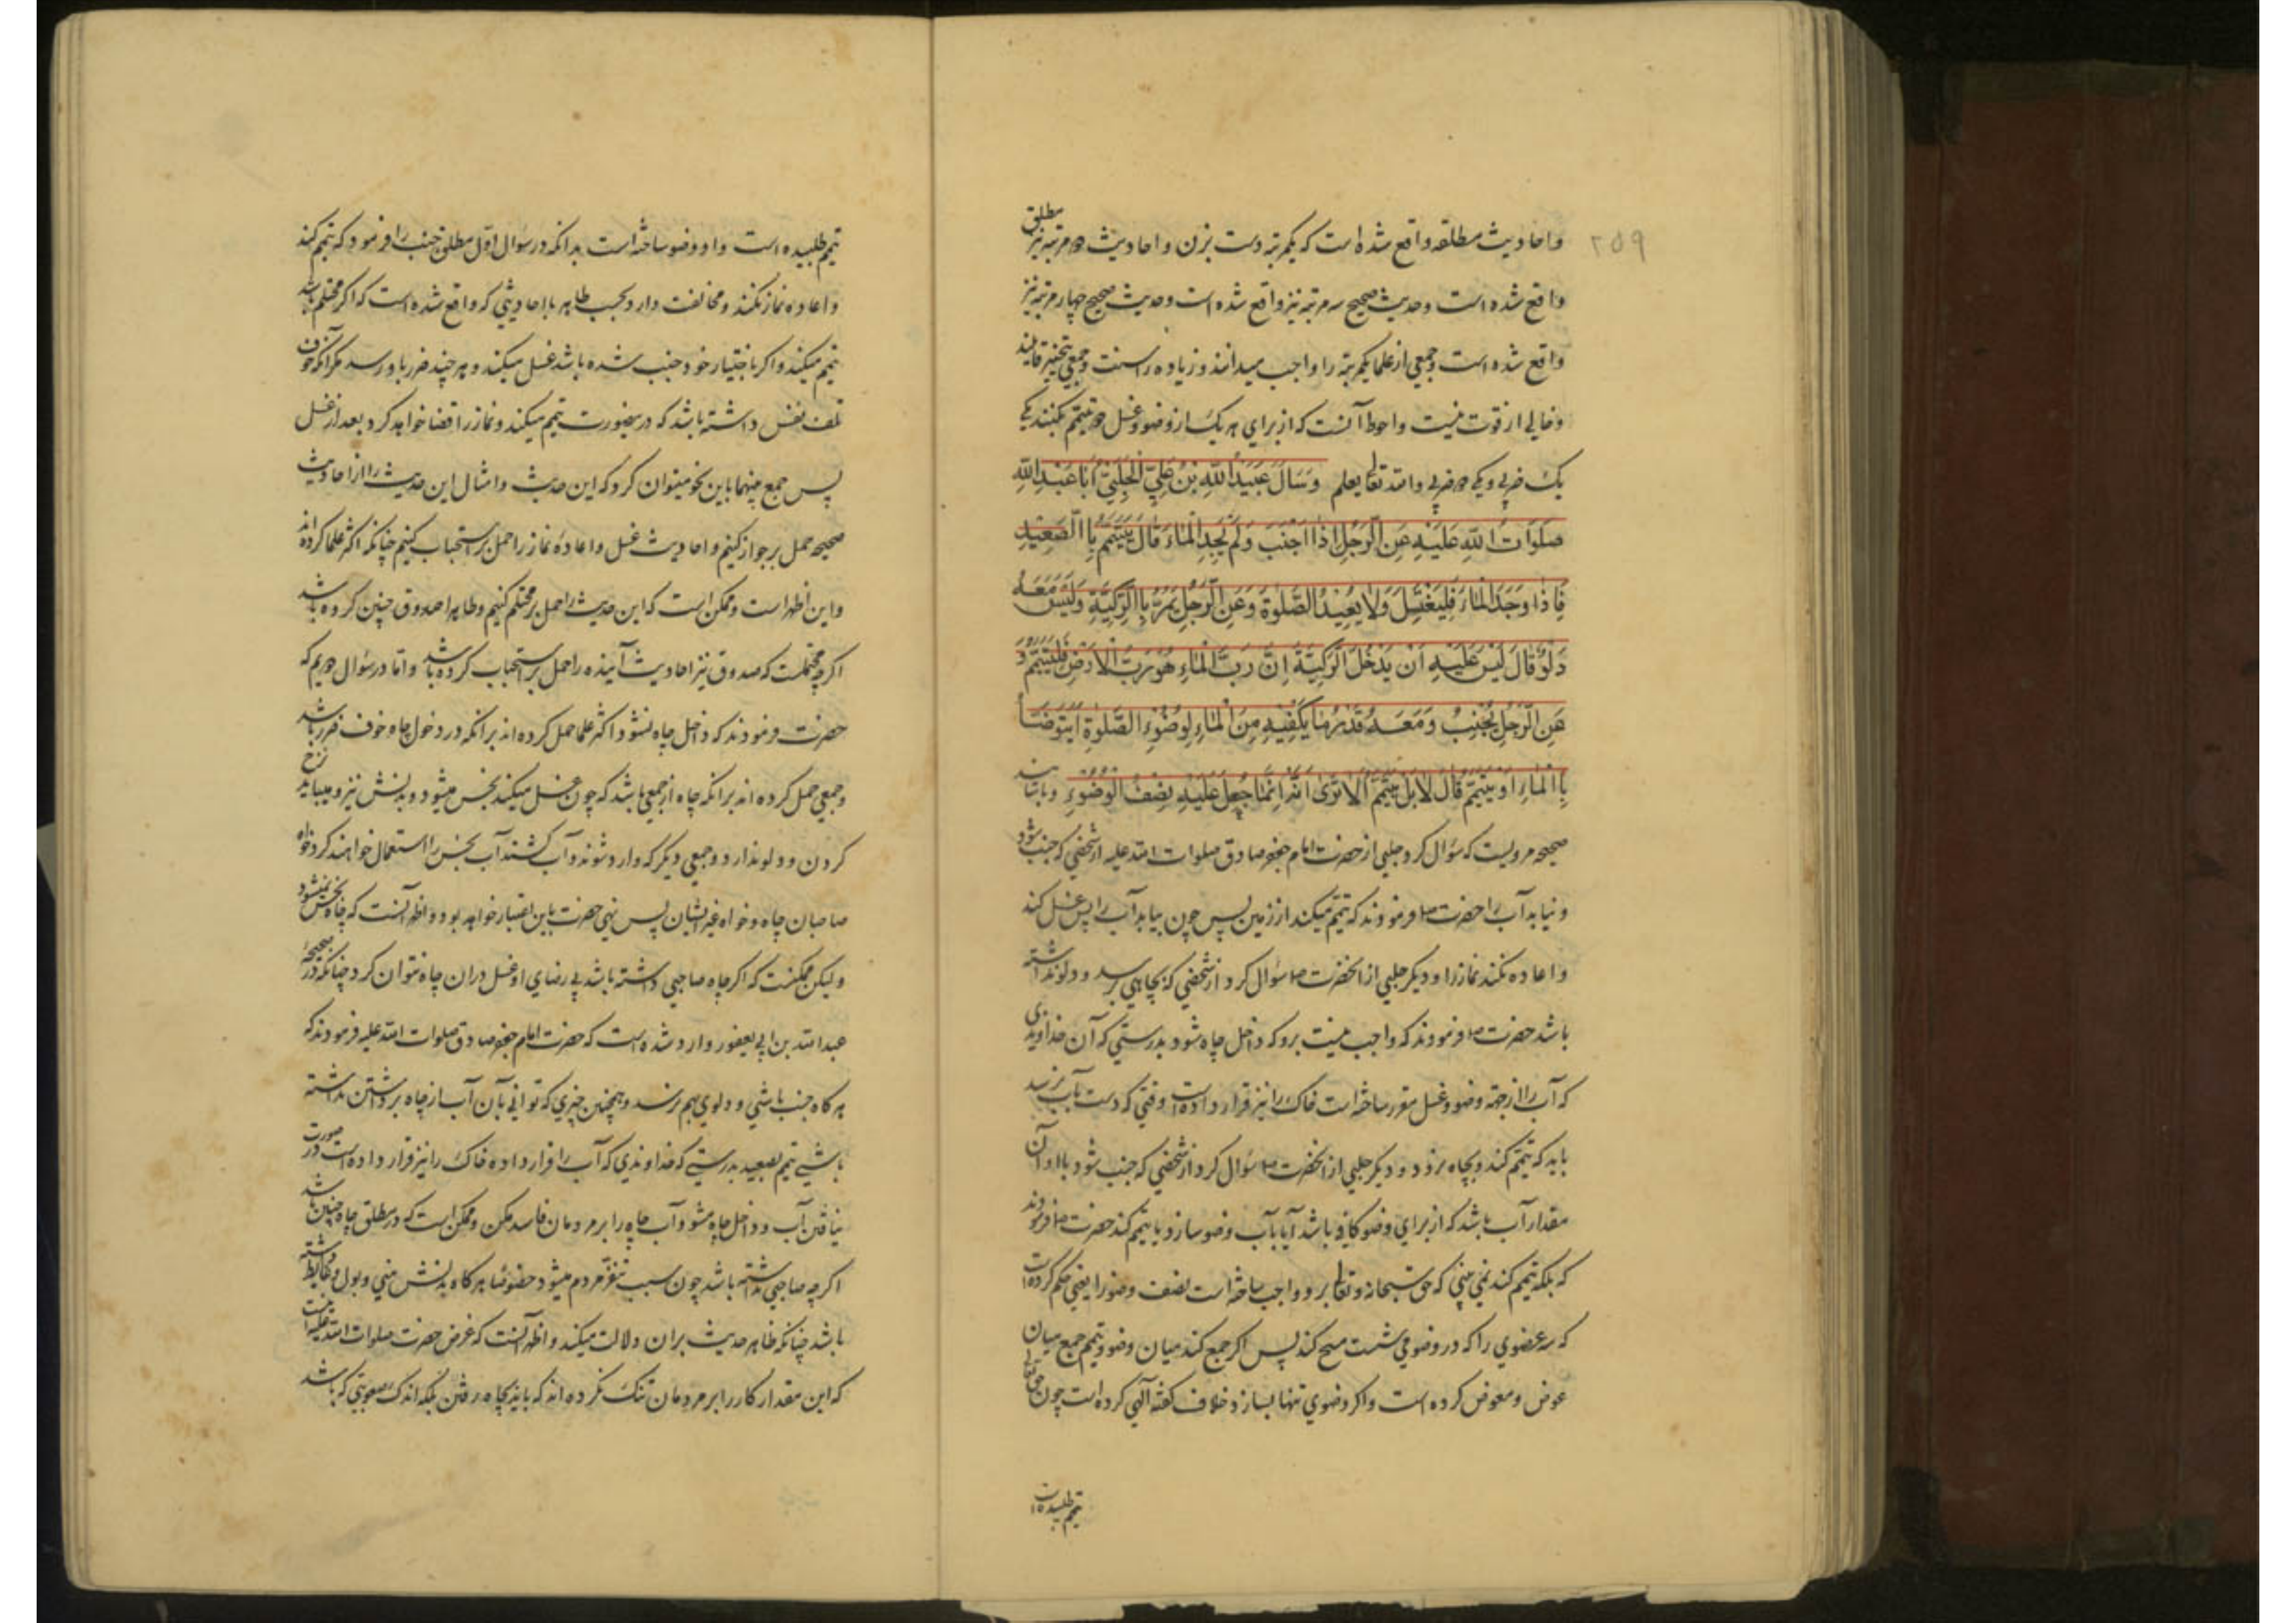 ۲۵۹
واحادیث مطلقه واقع شده است که یکمرتبه دست بزن و احادیث دو مرتبه نیز مطلق
واقع شده است وحدیث صحیح سه مرتبه نیز واقع شده است وحدیث صحیح چهار مرتبه نیز
واقع شده است وجمعی از علما یکمرتبه را واجب میدانند و زیاده را سنت وجمعی بتخییر قایلند
وخالی از قوت نیست واحوط آنست که از برای هر یک از وضو وغسل دو تیمم بکنند یکی
یک ضربی ویکی دو ضربی والله تعالی یعلم وَسَأَلَ عُبَیْدُ اللّهِ بْنُ عَلِیٍّ الْحَلَبِیُّ أَبَا عَبْدِ اللّهِ
صَلَوَاتُ اللّهِ عَلَیْهِ عَنِ الرَّجُلِ اِذَا اَجْنَبَ وَلَمْ یَجِدِ الْمَاءَ قَالَ یَتَیَمَّمُ بِالصَّعِیْدِ
فَاِذَا وَجَدَ الْمَاءَ فَلْیَغْتَسِلْ وَلَا یُعِیْدُ الصَّلٰوةَ وَعَنِ الرَّجُلِ یَمُرُّ بِالرَّکِیَّةِ وَلَیْسَ مَعَهُ
دَلْوٌ قَالَ لَیْسَ عَلَیْهِ اَنْ یَدْخُلَ الرَّکِیَّةَ اِنَّ رَبَّ الْمَاءِ هُوَ رَبُّ الْاَرْضِ فَلْیَتَیَمَّمْ وَ
عَنِ الرَّجُلِ یُجْنِبُ وَمَعَهُ قَدْرُ مَا یَکْفِیْهِ مِنَ الْمَاءِ لِوُضُوْءِ الصَّلٰوةِ اَیَتَوَضَّأُ
بِالْمَاءِ اَوْ یَتَیَمَّمُ قَالَ لَا بَلْ یَتَیَمَّمُ اَلَا تَرٰی اَنَّهُ اِنَّمَا جُعِلَ عَلَیْهِ نِصْفُ الْوُضُوْءِ وباسانید
صحیحه مرویست که سؤال کرد حلبی از حضرت امام جعفر صادق صلوات الله علیه از شخصی که جنب شود
و نیابد آب را حضرت فرمودند که تیمم میکند از زمین پس چون بیابد آب را پس غسل کند
واعاده نکند نماز را ودیگر حلبی از انحضرت سؤال کرد از شخصی که بچاهی رسد ودلو نداشته
باشد حضرت فرمودند که واجب نیست برو که داخل چاه شود بدرستی که آن خداوندی
که آب را از جهة وضو وغسل مقرر ساخته است خاک را نیز قرار داده است وقتی که دست بآب نرسد
باید که تیمم کند وبچاه نرود ودیگر حلبی از انحضرت سؤال کرد از شخصی که جنب شود با او آن
مقدار آب باشد که از برای وضو کافی باشد آیا بآب وضو سازد یا تیمم کند حضرت فرمودند
که بلکه تیمم کند نمی بینی که حق سبحانه وتعالی برو واجب ساخته است نصف وضو را یعنی حکم کرده است
که سه عضوی را که در وضو می شست مسح کند پس اکر جمع کند میان وضو وتیمم جمع میان
عوض ومعوض کرده است واکر وضوی تنها بسازد خلاف کفته آلهی کرده است چون حق تعالی
تیمم طلبیده است
تیمم طلبیده است واو وضو ساخته است بدانکه در سؤال اوّل مطلق جنب را فرمود که تیمم کند
واعاده نماز نکند ومخالفت دارد بحسب ظاهر با احادیثی که واقع شده است که اکر محتلم باشد
تیمم میکند واکر باختیار خود جنب شده باشد غسل میکند وهر چند ضرر باو رسد مکر آنکه خوف
تلف نفس داشته باشد که درینصورت تیمم میکند ونماز را قضا خواهد کرد بعد از غسل
پس جمع بینهما باین نحو میتوان کرد که این حدیث وامثال این حدیث را از احادیث
صحیحه حمل بر جواز کنیم واحادیث غسل واعادهٔ نماز را حمل بر استحباب کنیم چنانکه اکثر علما کرده اند
واین اظهر است وممکن است که این حدیث را حمل بر محتلم کنیم وظاهرا صدوق چنین کرده باشد
اکرچه محتملست که صدوق نیز احادیث آینده را حمل بر استحباب کرده باشد واما در سؤال دویم که
حضرت فرمودند که داخل چاه نشود اکثر علما حمل کرده اند برانکه در دخول چاه خوف ضرر باشد
وجمعی حمل کرده اند برانکه چاه از جمعی باشد که چون غسل میکند نجس میشود وبدنش نیز ومیباید نزح
کردن ودلو ندارد وجمعی دیکر که وارد شوند وآب کشند آب نجس را استعمال خواهند کرد خواه
صاحبان چاه وخواه غیر ایشان پس نهی حضرت باین اعتبار خواهد بود واظهر آنست که چاه نجس نمیشود
ولیکن ممکنست که اکر چاه صاحبی داشته باشد بی رضای او غسل دران چاه نتوان کرد چنانکه در صحیحهٔ
عبدالله بن ابی یعفور وارد شده است که حضرت امام جعفر صادق صلوات الله علیه فرمودند که
هر کاه جنب باشی ودلوی بهم نرسد وهمچنین چیزی که توانی بآن آب از چاه برداشتن نداشته
باشی تیمم بصعید بدرستی که خداوندی که آب را قرار داده خاک را نیز قرار داده است در صورت
نیافتن آب وداخل چاه مشو وآب چاه را بر مردمان فاسد مکن وممکن است که در مطلق چاه چنین باشد
اکرچه صاحبی نداشته باشد چون سبب تنفر مردم میشود خصوصا هر کاه بدنش منی وبول وغایط داشته
باشد چنانکه ظاهر حدیث بران دلالت میکند واظهر آنست که غرض حضرت صلوات الله علیه آنست
که این مقدار کار را بر مردمان تنک نکرده اند که باید بچاه رفتن بلکه اندک صعوبتی که باشد